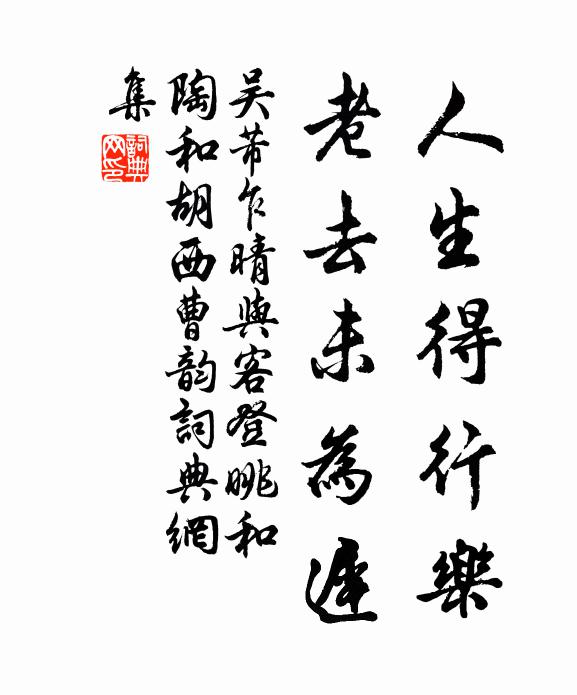 人生得行樂
老去未為遲
吴芾乍晴與客登眺和
陶和胡西曹韵詞典網
集
詞典网印